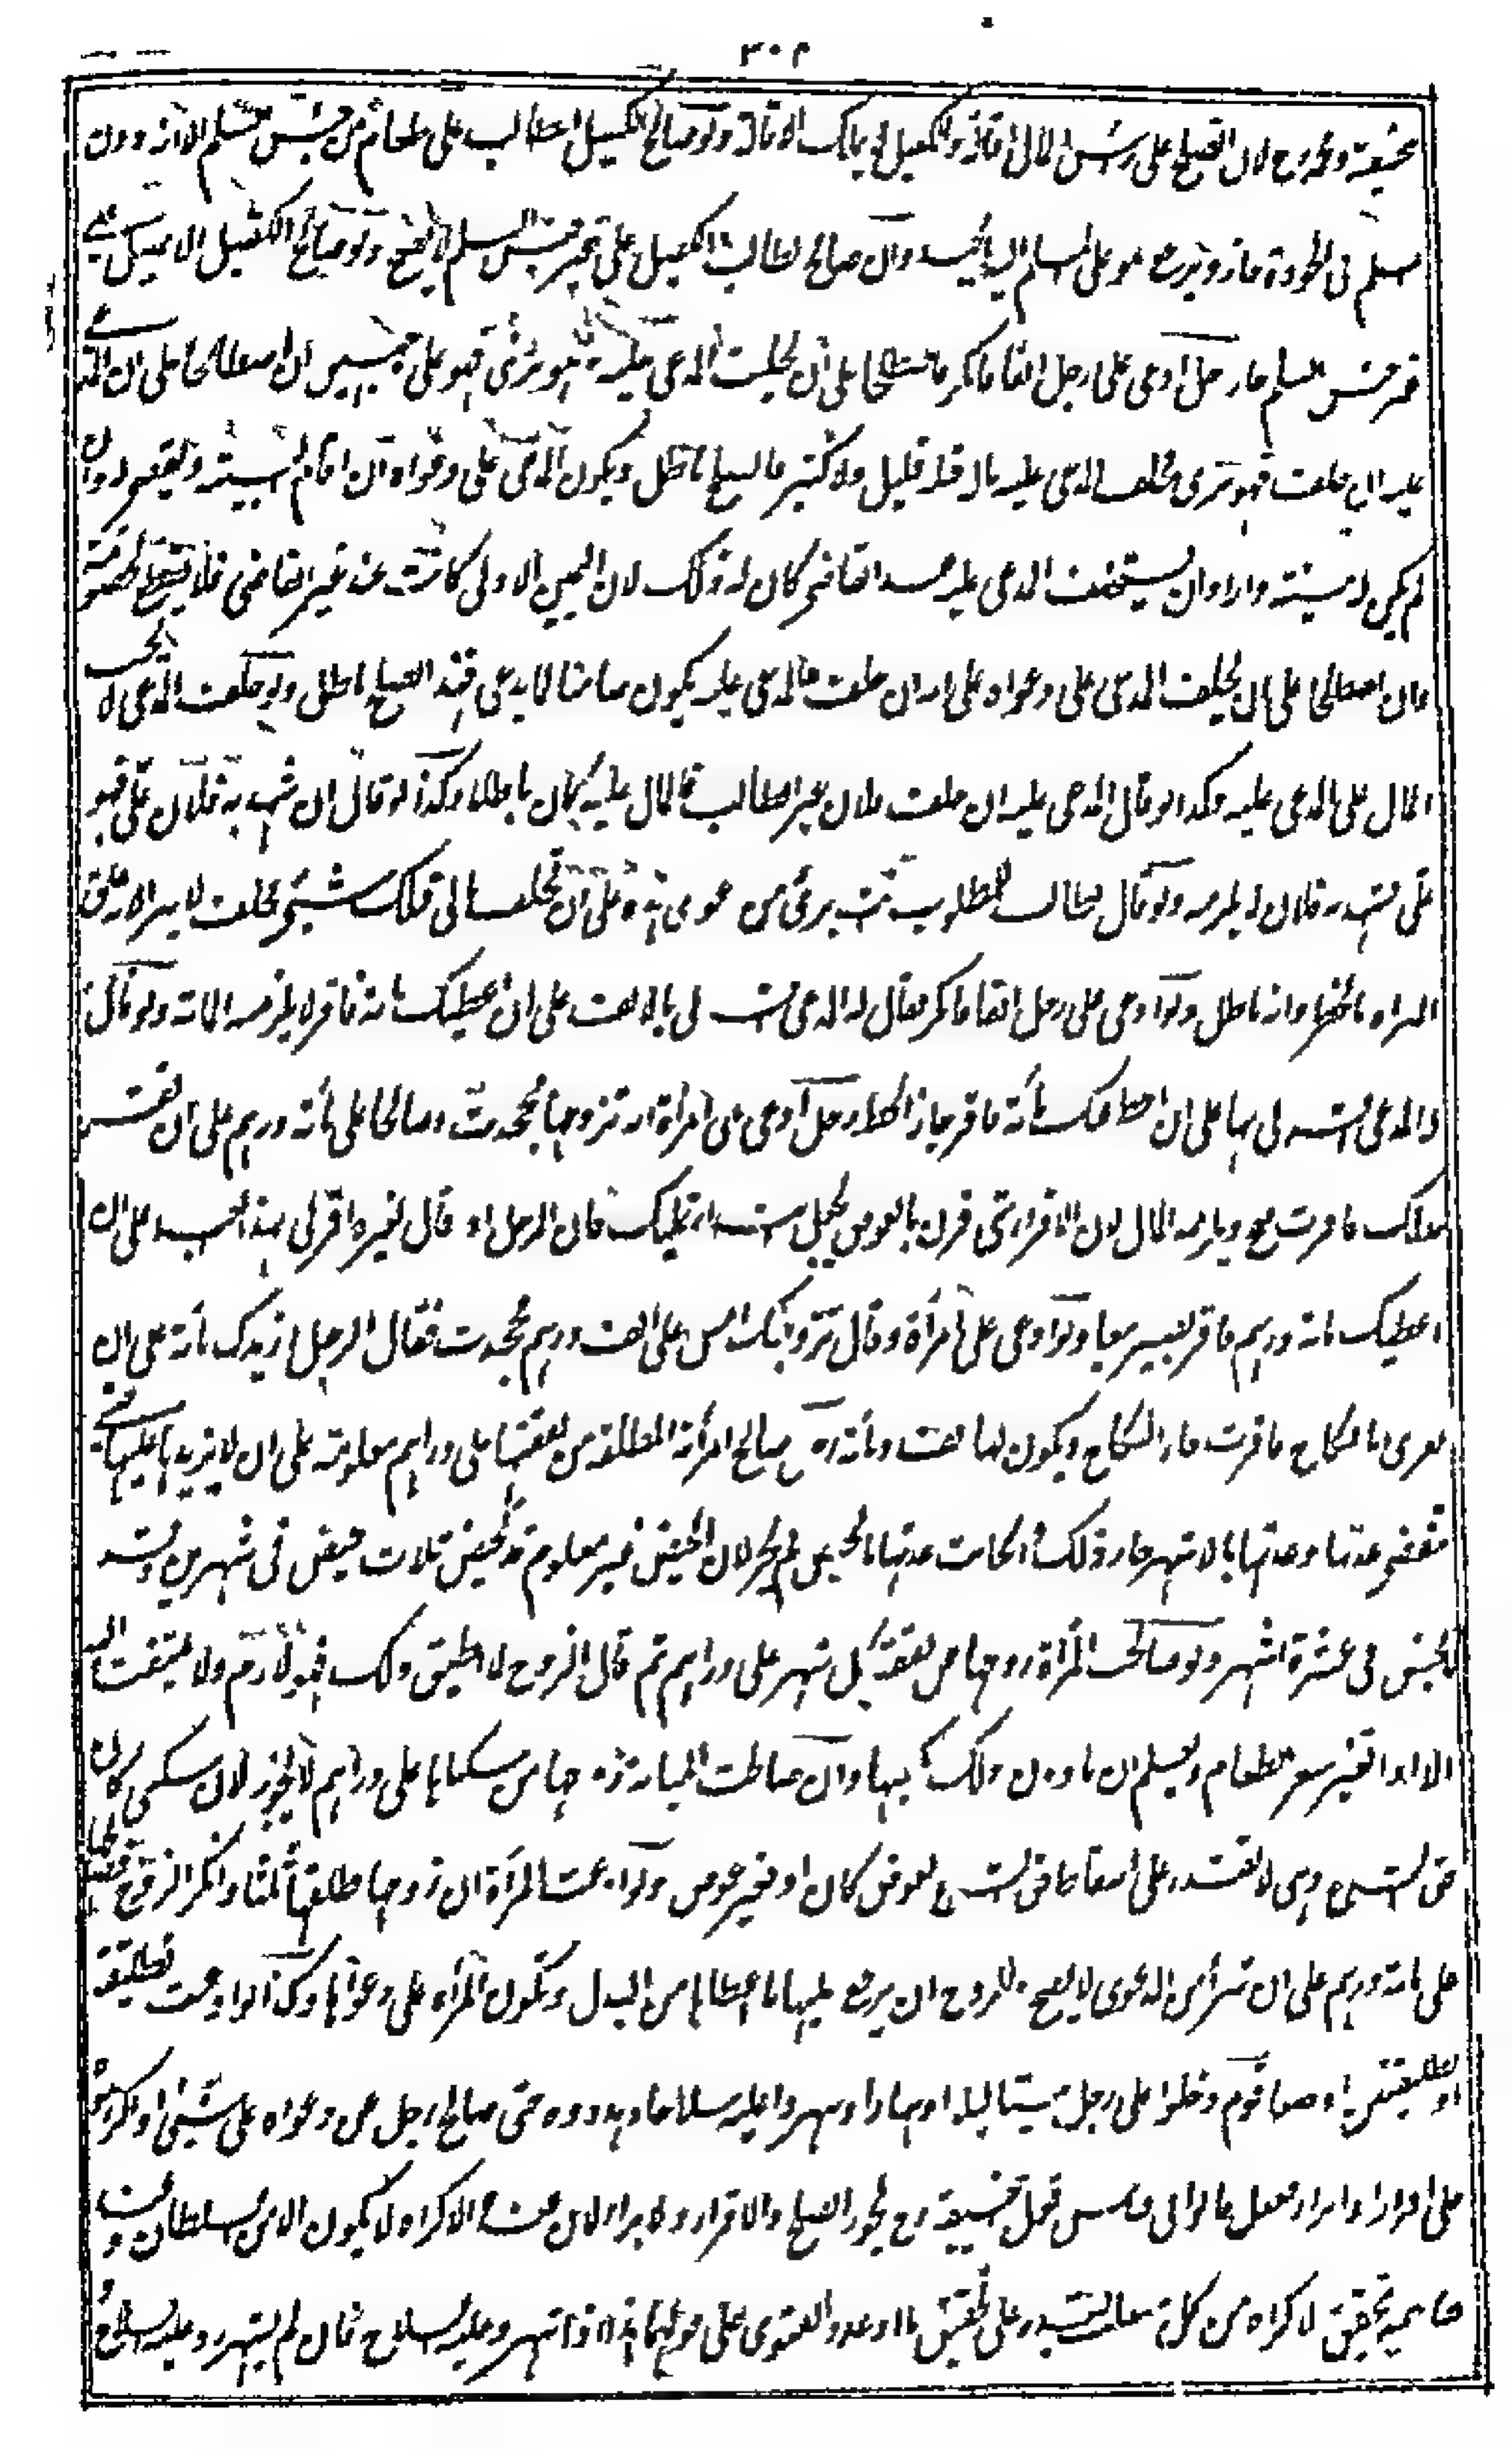 ٣٠٤
حنيفة ومحمد رح لان الصلح على رأس المال اقالة والكفيل لا يملك الاقالة ولو صالح الكفيل الطالب على طعام من جنس المسلم الا انه دون
المسلم في الجودة جاز ويرجع هو على المسلم اليه بالجيد وان صالح الطالب الكفيل على غير جنس السلم لا يصح ولو صالح الكفيل الاصيل على
غير جنس السلم جاز رجل ادعى على رجل الفا فانكر فاصطلحا على ان يحلف المدعى عليه فهو برئ فهو على وجهين ان اصطلحا على ان المدعى
عليه ان حلف فهو برئ فحلف المدعى عليه ما له قبله قليل ولا كثير فالصلح باطل ويكون المدعي على دعواه ان اقام البينة يقضى له وان
لم يكن له بينة واراد ان يستحلف المدعى عليه عند القاضي كان له ذلك لان اليمين الاولى كانت عند غير القاضي فلا يقطع الخصومة
فان اصطلحا على ان يحلف المدعي على دعواه على انه ان حلف فالمدعى عليه يكون ضامنا لما يدعي فهذا الصلح باطل ولو حلف المدعي لا يجب
المال على المدعى عليه وكذا لو قال المدعى عليه ان حلف فلان غير الطالب فالمال عليه كان باطلا وكذا لو قال ان شهد به فلان علي فهو
علي فشهد به فلان لم يلزمه ولو قال الطالب للمطلوب انت برئ من دعوى هذه على ان تحلف مالي قبلك شيئ فحلف لا يبرأ لانه علق
البراءة بالخطر وانه باطل ولو ادعى على رجل الفا فانكر فقال له المدعي اقر لي بالالف على ان اعطيك مائة فاقر لا يلزمه المائة ولو قال
المدعي اقر لي بها على ان احط عنك مائة فاقر جاز الحط رجل ادعى على امرأة انه تزوجها فجحدت وصالحها على مائة درهم على ان تقر
بذلك فاقرت صح ويلزمه المال لان الاقرار متى قرن بالعوض يجعل ابتداء تمليك فان الرجل لو قال لغيره اقر لي بهذا العبد على ان
اعطيك مائة درهم فاقر يصير بيعا ولو ادعى على امرأة وقال تزوجتك امس على الف درهم فجحدت فقال الرجل ازيدك مائة على ان
تقري بالنكاح فاقرت جاز النكاح ويكون لها الف ومائة درهم صالح امرأته المطلقة من نفقتها على دراهم معلومة على ان لا يزيدها عليها حتى
تنقضي عدتها وعدتها بالاشهر جاز ذلك وان كانت عدتها بالحيض لم يجز لان الحيض غير معلوم قد تحيض ثلاث حيض في شهرين وقد
لا تحيض في عشرة اشهر ولو صالحت المرأة زوجها من نفقة كل شهر على دراهم ثم قال الزوج لا اطيق ذلك فهو لازم ولا يلتفت اليه
الا اذا تغير سعر الطعام ويعلم ان ما دون ذلك يكفيها وان صالحت المبانة زوجها من سكناها على دراهم لا يجوز لان السكنى كان
حق الشرع وهي لا تقدر على اسقاط حق الشرع بعوض كان او بغير عوض ولو ادعت المرأة ان زوجها طلقها ثلثا وانكر الزوج فصالحها
على مائة درهم على ان تبرأ من الدعوى لا يصح وللزوج ان يرجع عليها بما اعطاها من البدل وتكون المرأة على دعواها وكذا لو ادعت تطليقة
او تطليقتين او خلعا قوم دخلوا على رجل بيتا ليلا او نهارا وشهروا عليه سلاحا وهددوه حتى صالح رجل عن دعواه على شيئ او اكرهوه
على اقرار او ابراء ففعل قالوا في قياس قول ابي حنيفة رح يجوز الصلح والاقرار والابراء لان عنده الاكراه لا يكون الا من السلطان وعند
صاحبيه يتحقق الاكراه من كل متغلب يقدر على تحقيق ما اوعد والفتوى على قولهما هذا اذا شهر وعليه السلاح فان لم يشهروا عليه السلاح و